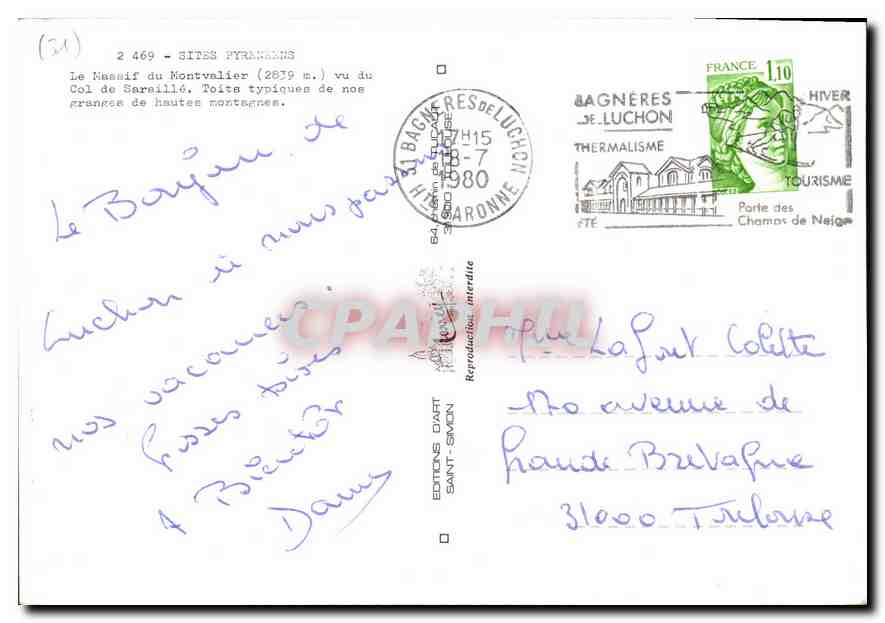 (31)
2 469 - SITES PYRENEENS
Le Massif du Montvalier (2839 m.) vu du
Col de Saraillé. Toits typiques de nos
granges de hautes montagnes.
Le Bonjour de
Luchon où nous passons
nos vacances.
Grosses bises
A Bientôt
Dany
31 BAGNERES DE LUCHON
17H15
18-7
1980
HTE GARONNE
BAGNÈRES
DE LUCHON
THERMALISME
ÉTÉ
HIVER
TOURISME
Porte des
Champs de Neige
FRANCE 1,10
EDITIONS D'ART
SAINT-SIMON
64, chemin de
31 TOULOUSE
Reproduction interdite
CPAPHIL
Lafont Colette
170 avenue de
Grande Bretagne
31000 Toulouse